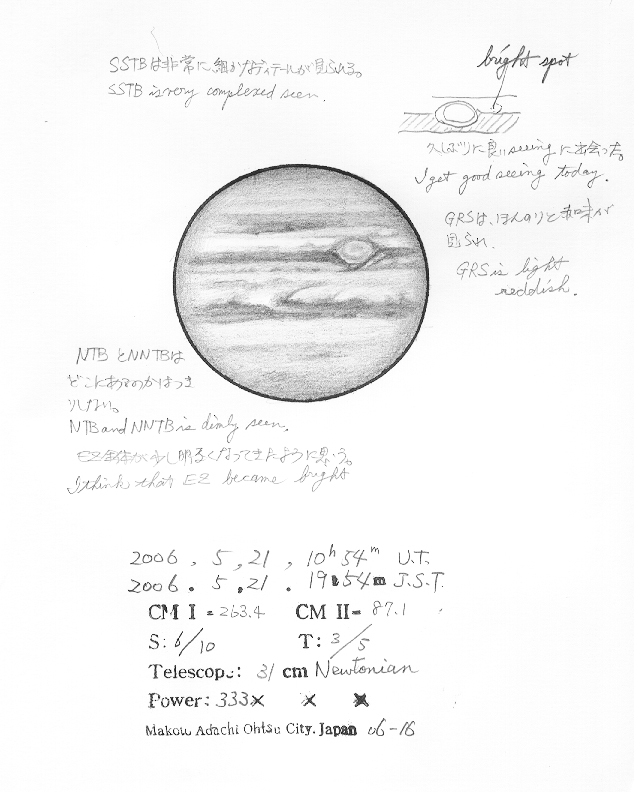 SSTBは非常に細かなディテールが見られる。
SSTB is very complexed seen.
bright spot
久しぶりに良いseeingに出会った。
I get good seeing today.
GRSは、ほんのりと赤味が
見られ、
GRS is light
reddish.
NTBとNNTBは
どこにあるのかはっき
りしない。
NTB and NNTB is dimly seen.
EZ全体が少し明るくなってきたように思う。
I think that EZ became bright
2006 . 5 , 21 , 10h 54m U.T.
2006 . 5 , 21 . 19 54m J.S.T.
CM I = 263.4 CM II= 87.1
S: 6/10 T: 3/5
Telescope: 31 cm Newtonian
Power: 333× × ×
Makoto Adachi Ohtsu City. Japan 06-16